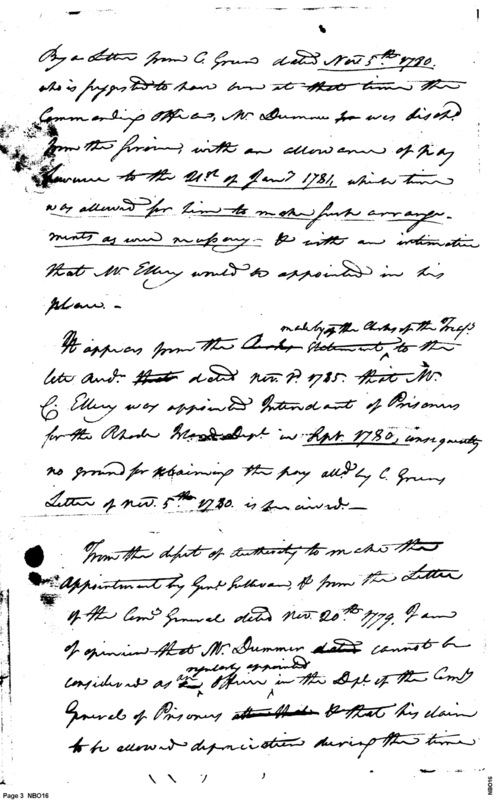 By a Letter from C. Green dated Nov. 5th 1780.
who is suggested to have been at that time the
Commanding Officer, Mr Dummer was disch.d
from the Service, with an allowance of pay
however to the 21st of Jany 1781, which time
was allowed for him to make such arrange-
ments as were necessary - & with an intimation
that Mr Ellery would be appointed in his
place. -
made by of the Clerks of the Treasy
It appears from the Statement to the
late Aud. that dated Nov. 1785. that Mr
C. Ellery was appointed Intendant of Prisoners
for the Rhode Dept. in Sept. 1780, consequently
no ground for retaining the pay alld. by C. Greens
Letter of Nov. 5th 1780. is perceived. -
From the defect of Authority to make the
Appointment by Genl Sullivan, & from the Letter
of the Comy General dated Nov. 20th 1779, I am
of opinion that Mr Dummer dated cannot be
regularly appointed
considered as an Officer in the Dept. of the Comy
General of Prisoners & that his claim
to be allowed depreciation during the time
Page 3 NBO16
NBO16